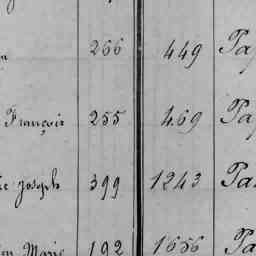 266 449 Pa
François 255 469 Pa
joseph 399 1243 Pa
Marie 192 1656 Pa